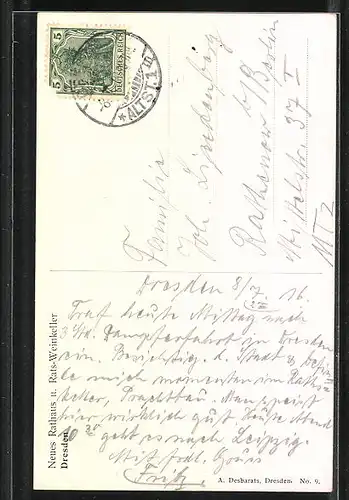 5
DEUTSCHES REICH
5
* ALTST. 1 m
Familie
Joh. Lindenberg
Rathenow b/Berlin
Mittelstr. 37 I
Dresden 8/7. 16.
Traf heute Mittag nach
3 Std. Dampferfahrt in Dresden
ein. Besichtig. d. Stadt &
mich momentan im Raths-
keller, Prachtbau. Man speist
hier wirklich gut. Heute Abend
10 30 geht es nach Leipzig.
Mit frdl. Gruss
Fritz
Neues Rathaus u. Rats-Weinkeller
Dresden
A. Desbarats, Dresden No. 9.